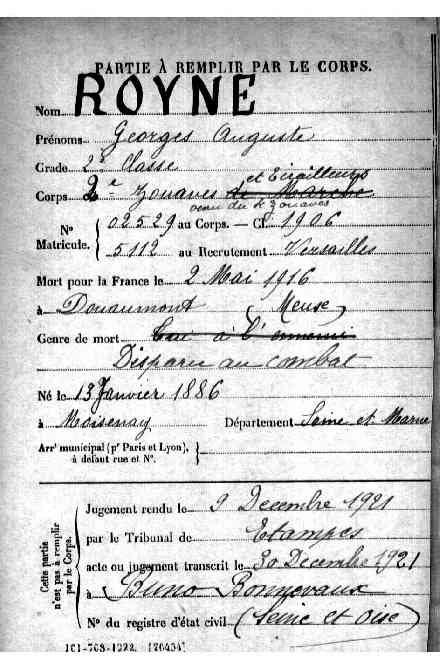 PARTIE À REMPLIR PAR LE CORPS.
Nom ROYNE
Prénoms Georges Auguste
Grade 2e Classe
et Tirailleurs
Corps 2e Zouaves de Marche
venu du 4 Zouaves
No Matricule. { 02529 au Corps. — Cl. 1906
5112 au Recrutement Versailles
Mort pour la France le 2 Mai 1916
à Douaumont (Meuse)
Genre de mort Tué à l'ennemi
Disparu au combat
Né le 13 Janvier 1886
à Moisenay Département Seine et Marne
Arrt municipal (pr Paris et Lyon), }
à défaut rue et No.
Cette partie n'est pas à remplir par le Corps.
Jugement rendu le 9 Decembre 1921
par le Tribunal de Etampes
acte ou jugement transcrit le 30 Decembre 1921
à Buno Bonnevaux
No du registre d'état civil (Seine et Oise)
101-708-1922. [26434]